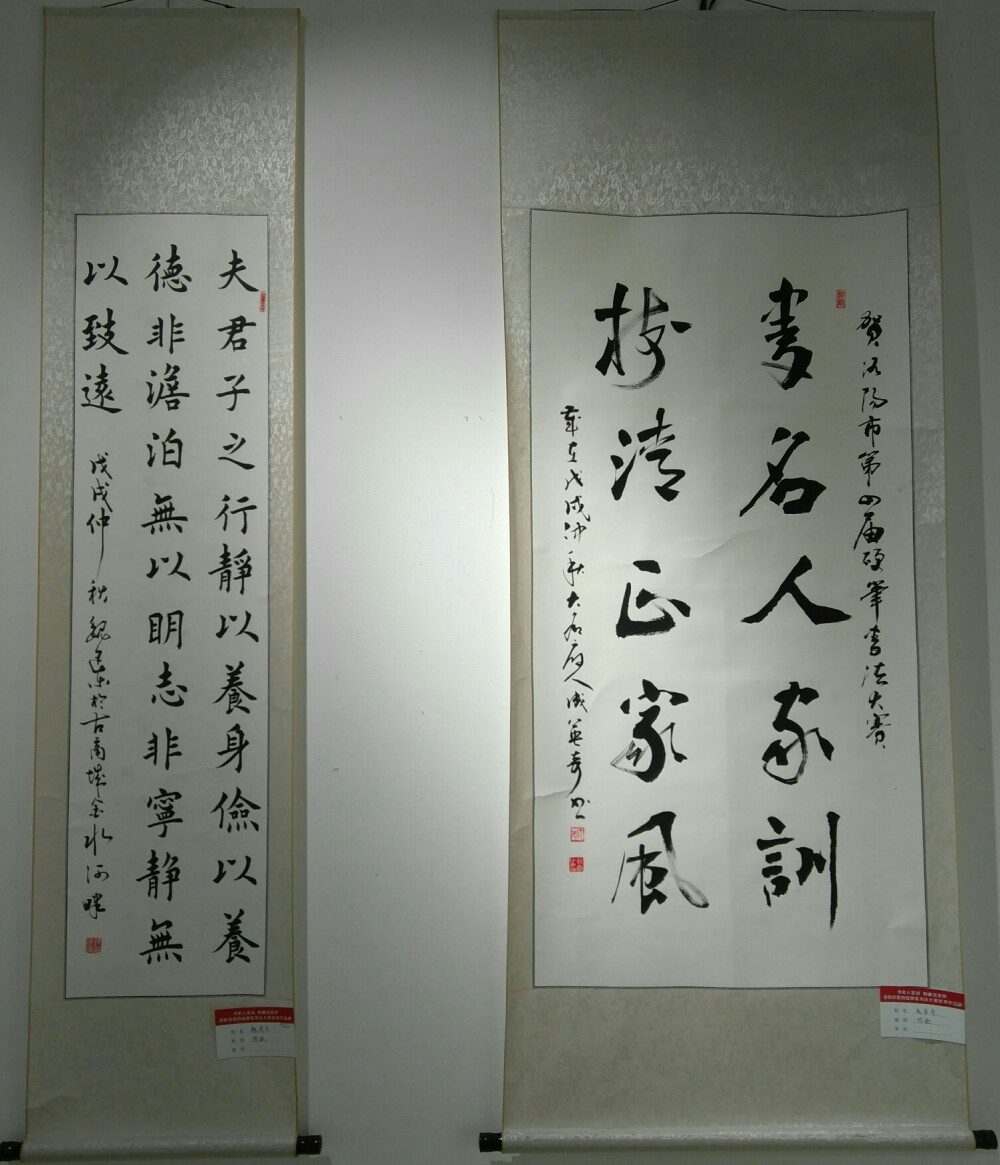 賀洛陽市第四届硬筆書法大賽
書名人家訓
樹清正家風
歲在戊戌仲秋大名府人
夫君子之行靜以養身儉以養
德非澹泊無以明志非寧静無
以致遠
戊戌仲秋魏建於古商城金水河畔